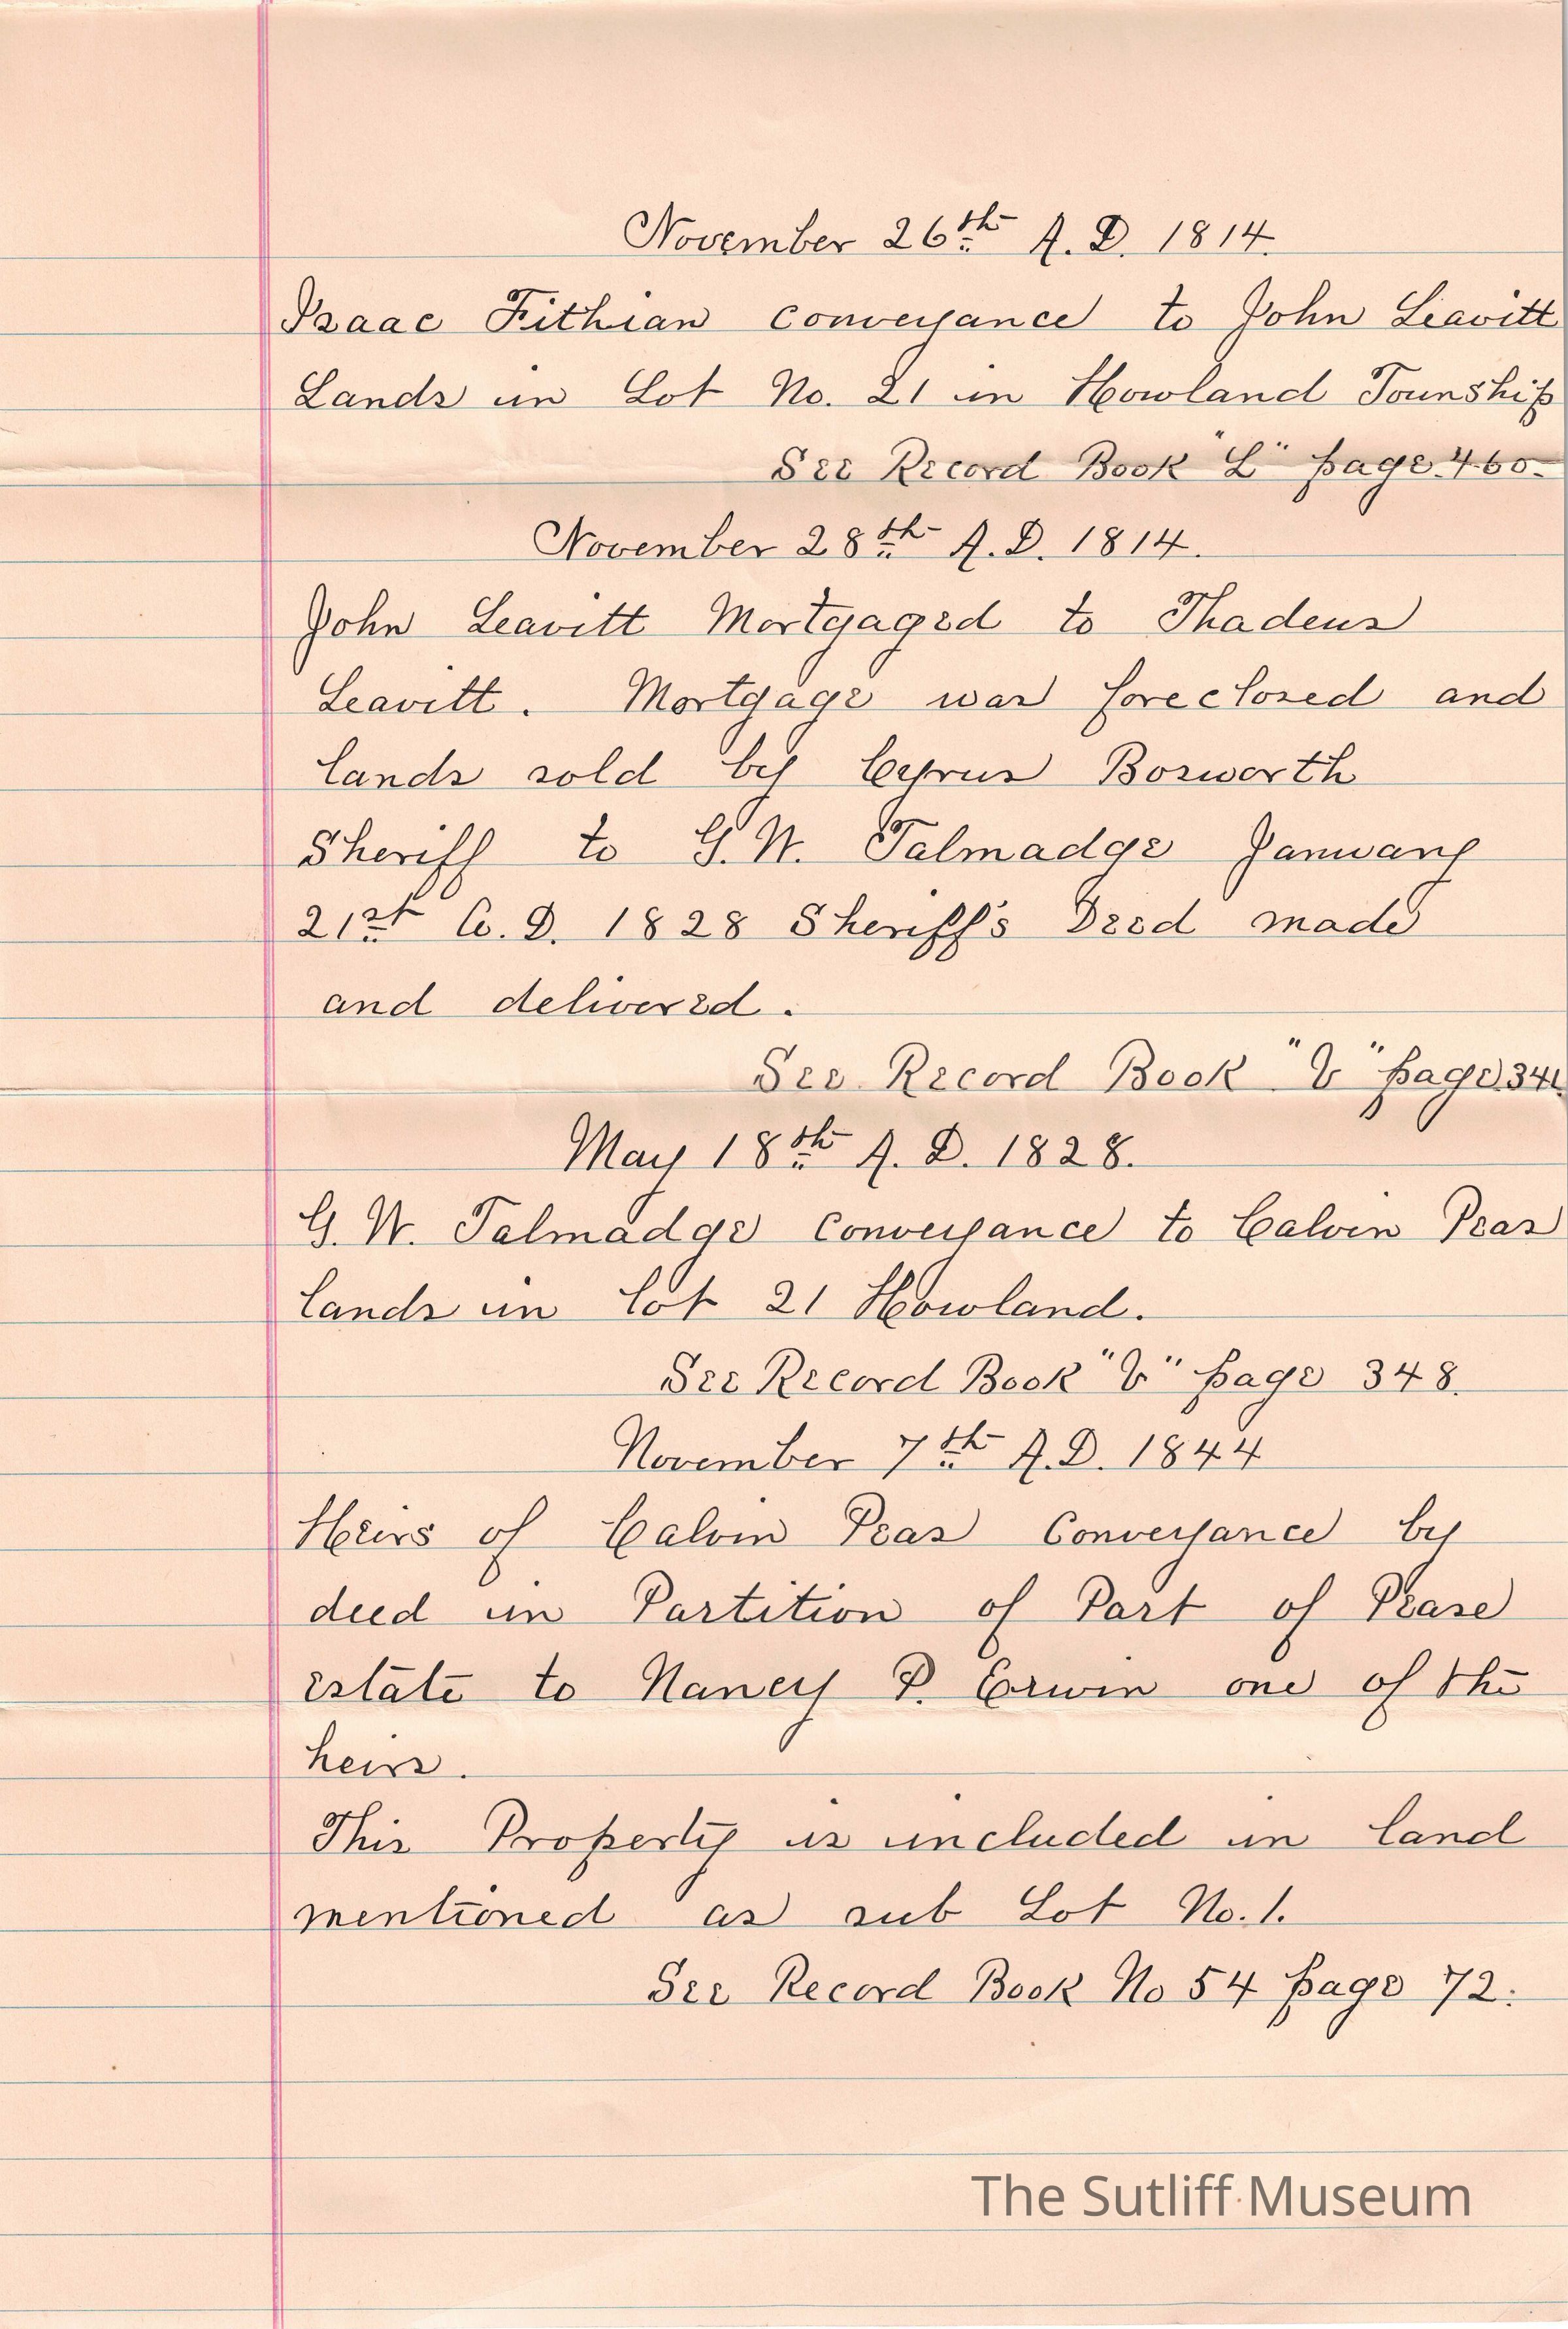 November 26th A. D. 1814.
Isaac Fithian Conveyance to John Leavitt
Lands in Lot No. 21 in Howland Tounship
See Record Book "L" page 460.
November 28th A. D. 1814.
John Leavitt Mortgaged to Thadeus
Leavitt. Mortgage was foreclosed and
lands sold by Cyrus Bosworth
Sheriff to G. W. Talmadge January
21st A. D. 1828 Sheriff's Deed made
and delivered.
See Record Book " " page 341.
May 18th A. D. 1828.
G. W. Talmadge Conveyance to Calvin Peas
lands in lot 21 Howland.
See Record Book " " page 348.
November 7th A. D. 1844
Heirs of Calvin Peas Conveyance by
deed in Partition of Part of Pease
estate to Nancy P. Erwin one of the
heirs.
This Property is included in land
mentioned as sub Lot No. 1.
See Record Book No 54 page 72.
The Sutliff Museum